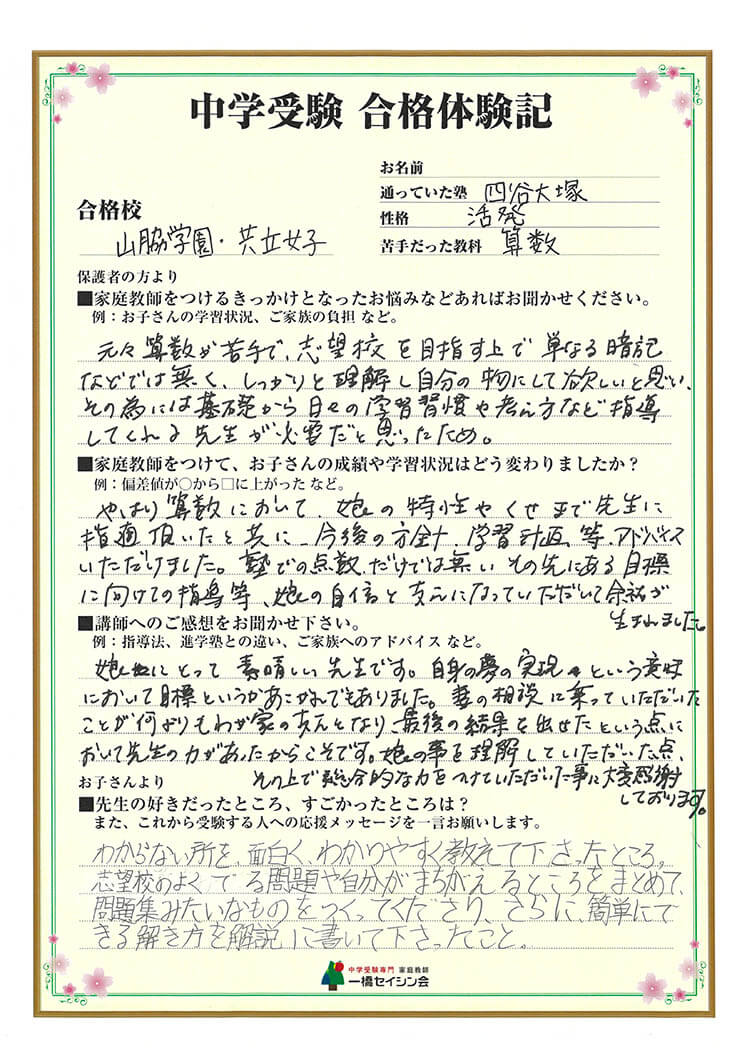 中学受験 合格体験記
お名前
通っていた塾 四谷大塚
性格 活発
苦手だった教科 算数
合格校
山脇学園・共立女子
保護者の方より
■家庭教師をつけるきっかけとなったお悩みなどあればお聞かせください。
例：お子さんの学習状況、ご家族の負担 など。
元々算数が苦手で、志望校を目指す上で単なる暗記
などでは無く、しっかりと理解し自分の物にして欲しいと思い、
その為には基礎から日々の学習習慣や考え方など指導
してくれる先生が必要だと思ったため。
■家庭教師をつけて、お子さんの成績や学習状況はどう変わりましたか？
例：偏差値が○から□に上がった など。
やはり算数において、娘の特性やくせまで先生に
指摘頂いたと共に、今後の方針、学習計画等、アドバイス
いただけました。塾での点数だけでは無いその先にある目標
に向けての指導等、娘の自信と支えになっていただいて余裕が
生まれました。
■講師へのご感想をお聞かせ下さい。
例：指導法、進学塾との違い、ご家族へのアドバイス など。
娘にとって素晴しい先生です。自身の夢の実現という意味
において目標というかあこがれでもありました。妻の相談に乗っていただいた
ことが何よりもわが家の支えとなり、最後の結果を出せたという点に
おいて先生の力があったからこそです。娘の事を理解していただいた点、
その上で総合的な力をつけていただいた事に大変感謝
しております。
お子さんより
■先生の好きだったところ、すごかったところは？
また、これから受験する人への応援メッセージを一言お願いします。
わからない所を、面白く、わかりやすく教えて下さったところ。
志望校のよくでる問題や自分がまちがえるところをまとめて、
問題集みたいなものをつくってくださり、さらに、簡単にで
きる解き方を解説に書いて下さったこと。
中学受験専門 家庭教師
一橋セイシン会